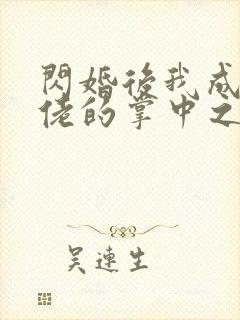 閃婚後我成
佬的掌中之
吳連生